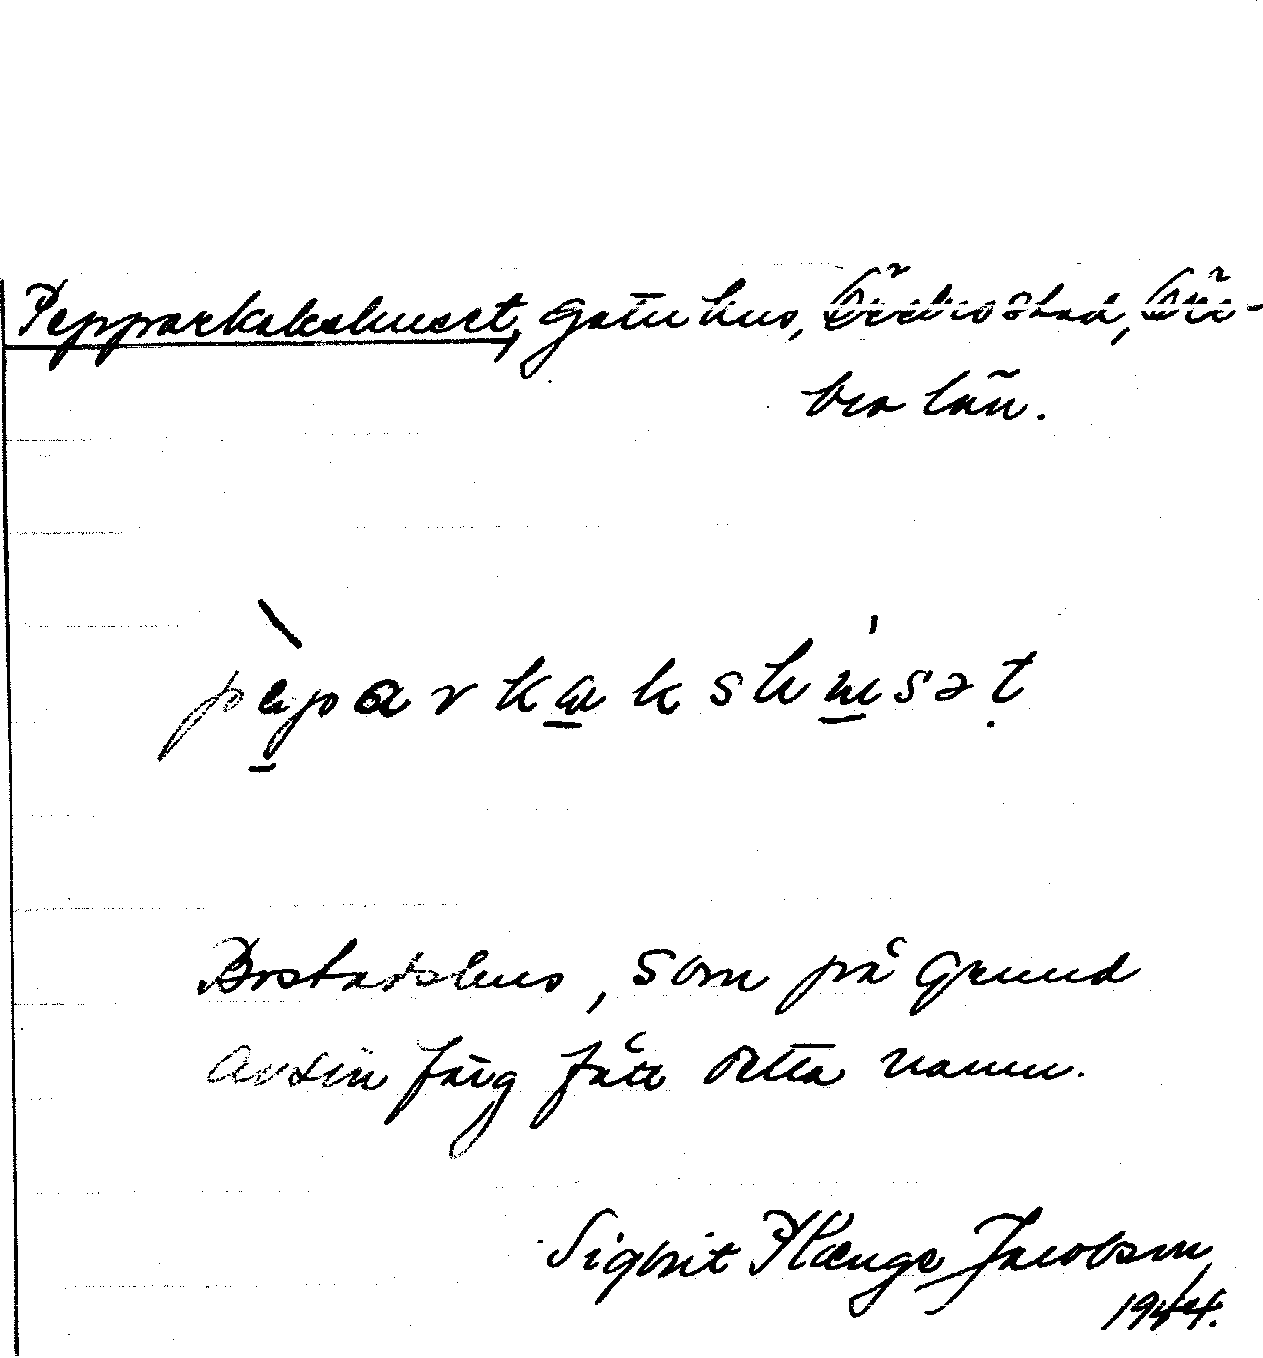 Pepparkakshuset, gatuhus, Örebro stad, Öre-
bro län.
pèparkakshusət
Bostadshus, som på grund
av sin färg fått detta namn.
Sigbrit Plænge Jacobson,
1944.